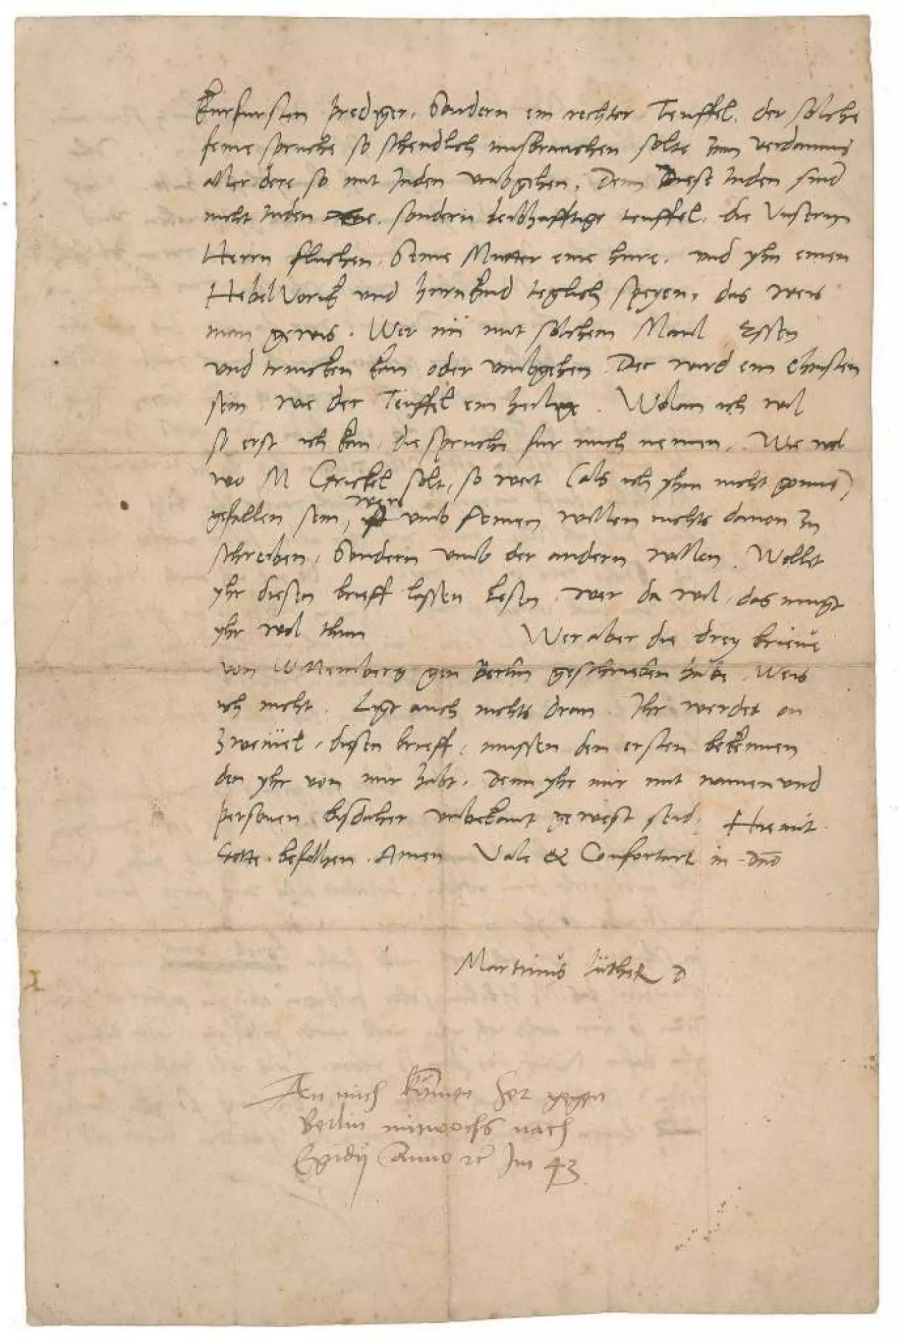 kurfursten prediger, sondern ein rechter Teuffel, der solche
feine spruche so schendlich misbrauchen solte zum verdamnis
aller dere so mit Juden umbgehen, Denn Diese Juden sind
nicht Juden sondern leibhafftige teuffel, die Unsern
Herrn fluchen, Seine Mutter eine hure, und yhn einen
Hebel Vorik und hurnkind teglich speyen, das weis
man gewis. Wer nu mit solchem Maul Essen
und trincken kan oder umbgehen, Der wird ein Christen
sein, wie der Teuffel ein heilige. Wolan ich wil
so erst ich kan, die spruche fur mich nemen, Wie wol
wo M Grickel solt, so weit (als ich yhm nicht gonne)
gefallen sein, were umb seinen willen nichts davon zu
schreiben, Sondern umb der andern willen. Wollet
yhr diesen brieff lassen lesen, wer da wil, das mugt
yhr wol thun Wer aber die drey brieve
von Wittemberg gen Berlin geschrieben habe, Weis
ich nicht. Ligt auch nichts dran. Ihr werdet on
zweivel, diesen brieff, mussen den ersten bekennen
den yhr von mir habt, Denn yhr mir mit namen und
personen, bisdaher unbekant gewest seid, Hiemit
Gotte befolhen, Amen Vale & Confortare in dno
Martinus Luther D
An mich kumen her gegen
Berlin mitwochs nach
Egidij Anno rc Im 43